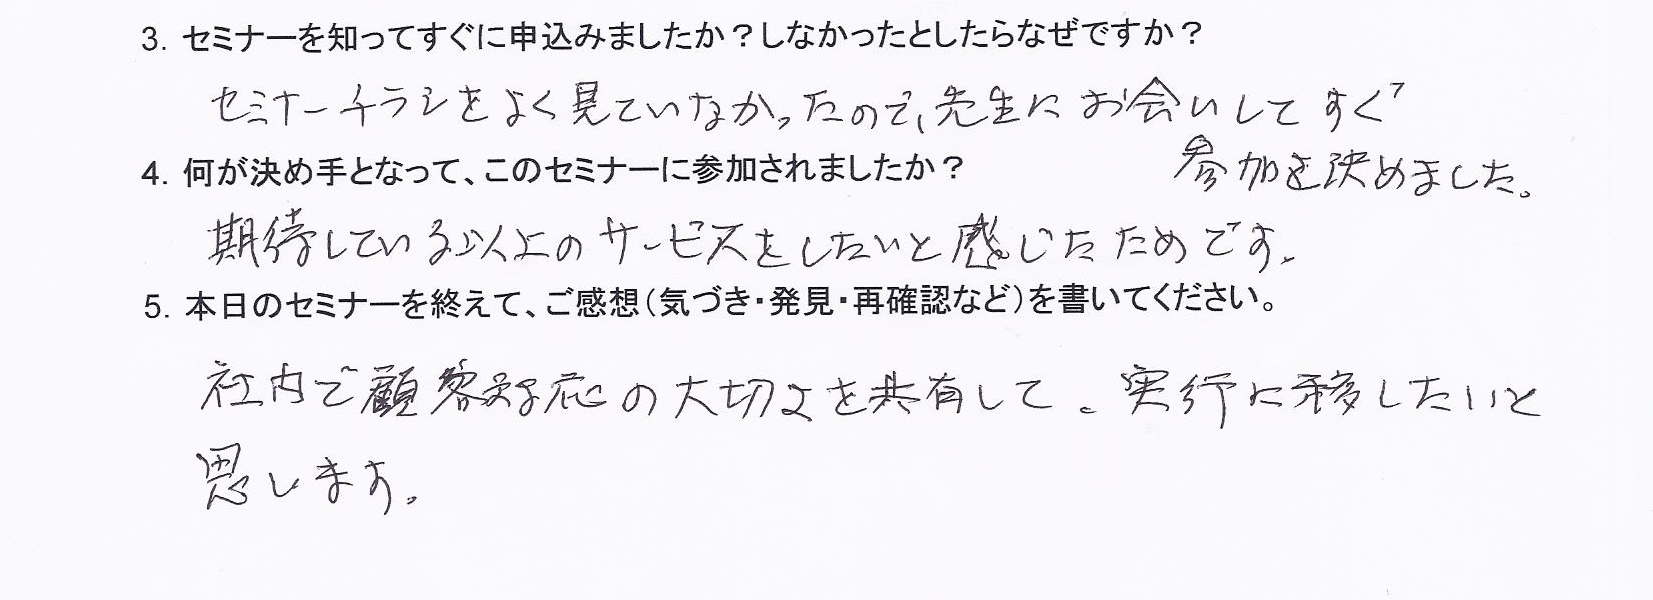 3. セミナーを知ってすぐに申込みましたか？しなかったとしたらなぜですか？
セミナーチラシをよく見ていなかったので、先生にお会いしてすぐ
参加を決めました。
4. 何が決め手となって、このセミナーに参加されましたか？
期待している以上のサービスをしたいと感じたためです。
5. 本日のセミナーを終えて、ご感想（気づき・発見・再確認など）を書いてください。
社内で顧客対応の大切さを共有して。実行に移したいと
思します。